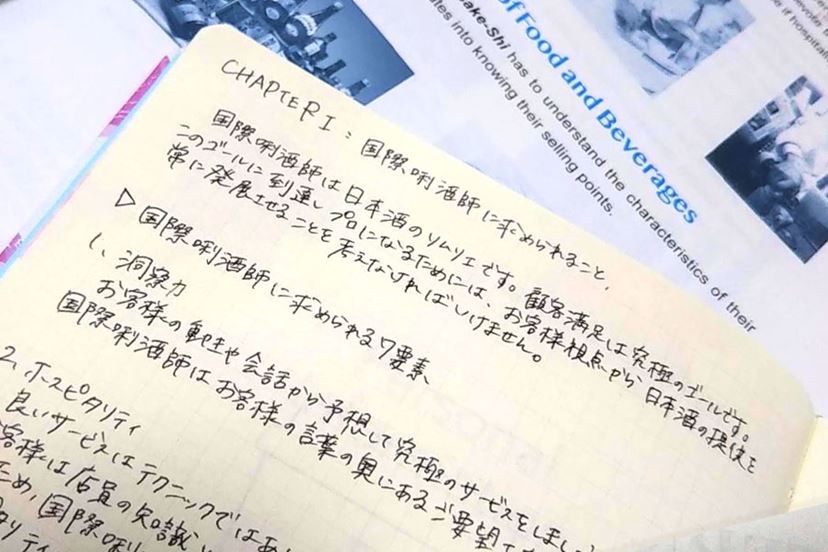 CHAPTER I : 国際唎酒師に求められること、
国際唎酒師は日本酒のソムリエです。顧客満足は究極のゴールです。
このゴールに到達しプロになるためには、お客様視点から、日本酒の提供を
常に発展させることを考えなければいけません。
▷ 国際唎酒師に求められる7要素、
1. 洞察力
お客様の動きや会話から予想して究極のサービスをしましょう
国際唎酒師はお客様の言葉の奥にあるご要望
2. ホスピタリティ
良いサービスはテクニックではあ
客様は店員の知識
ため、国際唎
タリティ
of Food and Beverages
ake-Shi has to understand the characteristics of their
tes into knowing their selling points.
if hospital